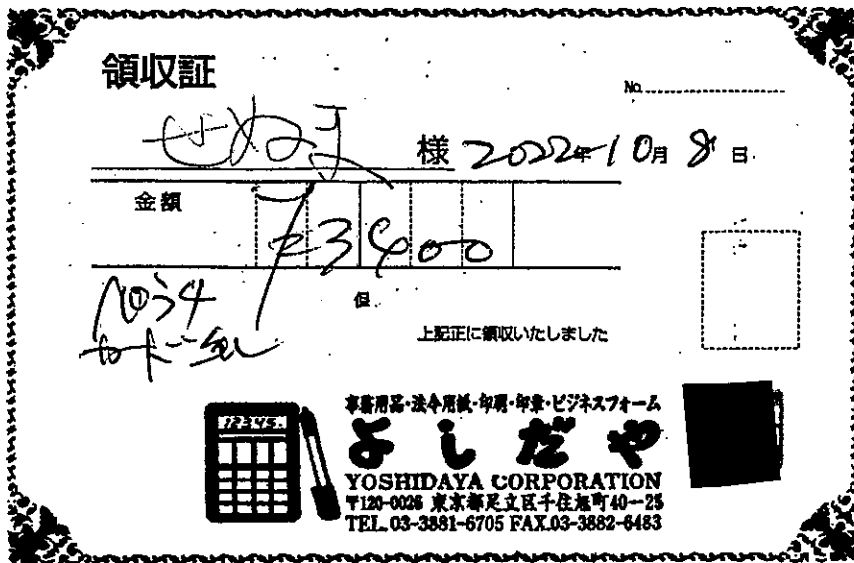 領収証
No.
様 2022年10月8日
金額
3400
但
上記正に領収いたしました
12345.
事務用品・法令用紙・印刷・印章・ビジネスフォーム
よしだや
YOSHIDAYA CORPORATION
〒120-0026 東京都足立区千住旭町40-25
TEL.03-3881-6705 FAX.03-3882-6483